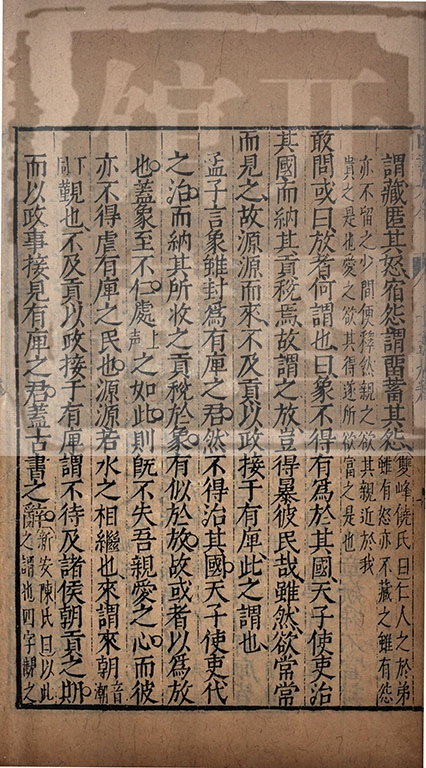 謂藏匿其怒宿怨謂畱蓄其怨雙峰饒氏曰仁人之於弟雖有怒亦不藏之雖有怨
亦不畱之少間便釋然親之欲其親近於我
貴之是也愛之欲其得遂所欲富之是也
敢問或曰放者何謂也曰象不得有爲於其國天子使吏治
其國而納其貢稅焉故謂之放豈得暴彼民哉雖然欲常常
而見之故源源而來不及貢以政接于有庳此之謂也
孟子言象雖封爲有庳之君然不得治其國天子使吏代
之治而納其所收之貢稅於象有似於放故或者以爲放
也蓋象至不仁處上声之如此則旣不失吾親愛之心而彼
亦不得虐有庳之民也源源若水之相繼也來謂來朝音潮
下同覲也不及貢以政接于有庳謂不待及諸侯朝貢之期
而以政事接見有庳之君蓋古書之辭新安陳氏曰以此之謂也四字觀之